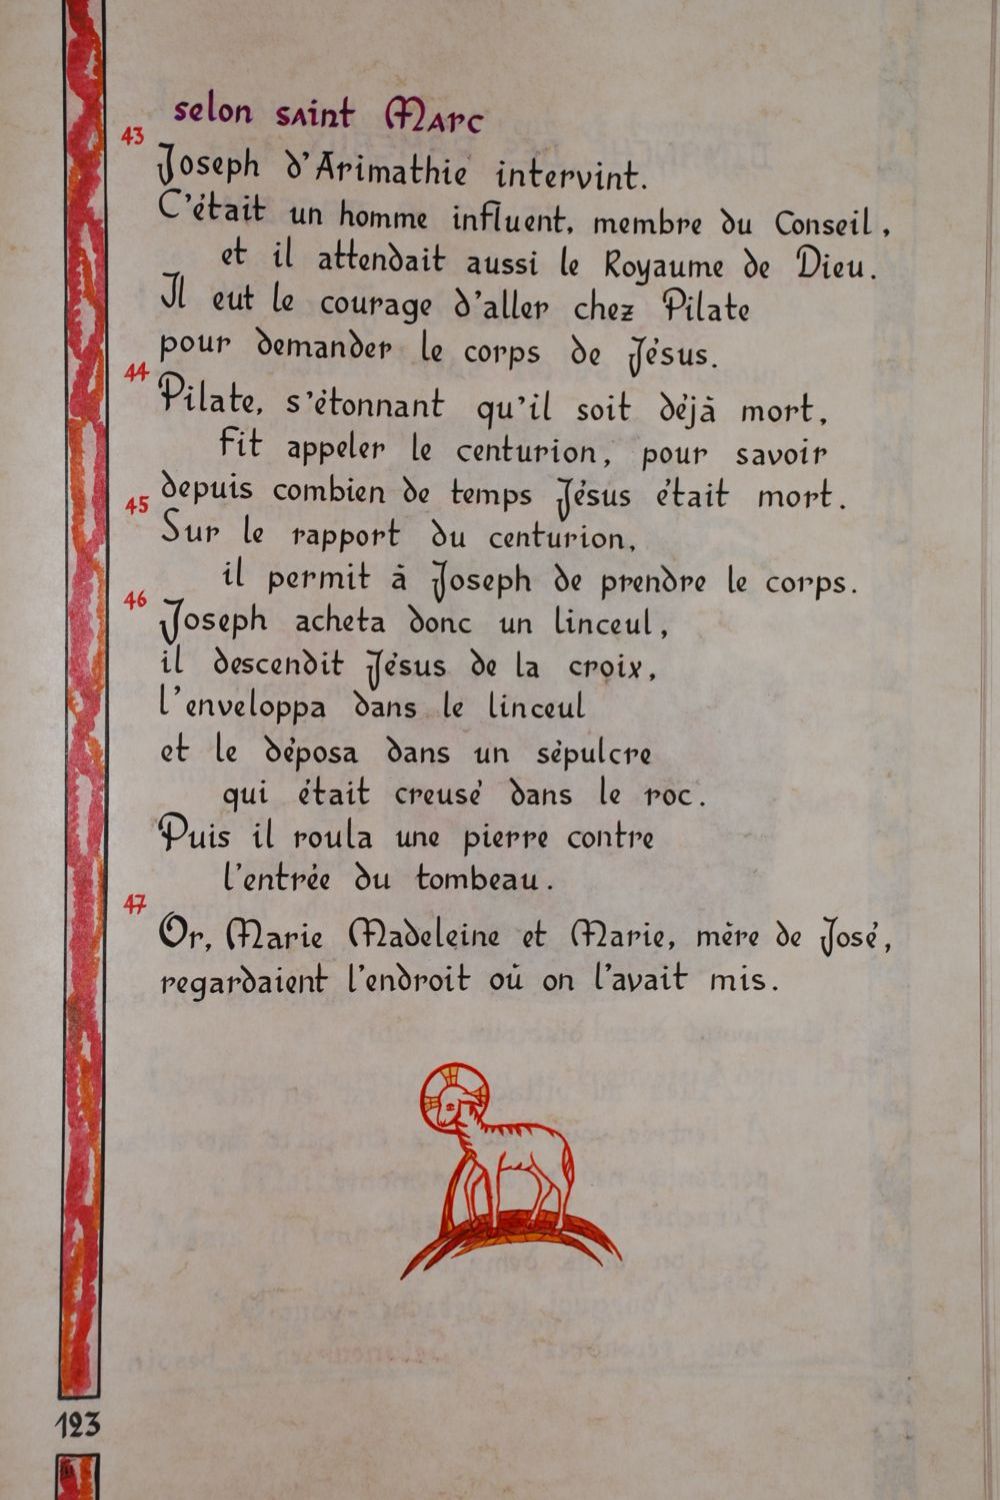 selon saint Marc
43
Joseph d'Arimathie intervint.
C'était un homme influent, membre du Conseil,
et il attendait aussi le Royaume de Dieu.
Il eut le courage d'aller chez Pilate
pour demander le corps de Jésus.
44
Pilate, s'étonnant qu'il soit déjà mort,
fit appeler le centurion, pour savoir
depuis combien de temps Jésus était mort.
45
Sur le rapport du centurion,
il permit à Joseph de prendre le corps.
46
Joseph acheta donc un linceul,
il descendit Jésus de la croix,
l'enveloppa dans le linceul
et le déposa dans un sépulcre
qui était creusé dans le roc.
Puis il roula une pierre contre
l'entrée du tombeau.
47
Or, Marie Madeleine et Marie, mère de José,
regardaient l'endroit où on l'avait mis.
123